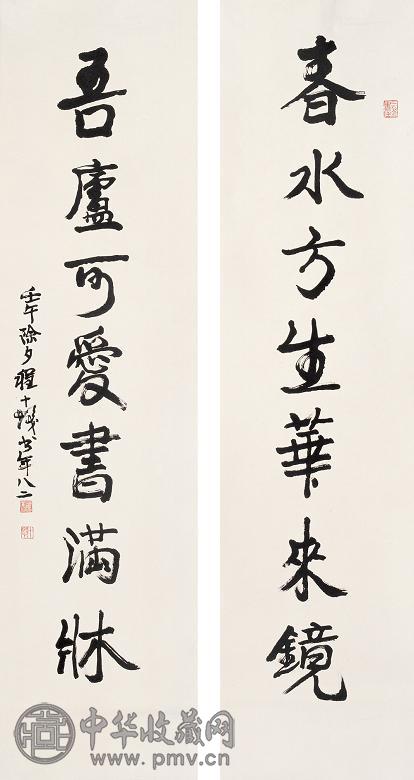 春水方生華來鏡
吾廬可愛書滿牀
壬午除夕程十髮書年八二
中华收藏网
www.pmv.cn